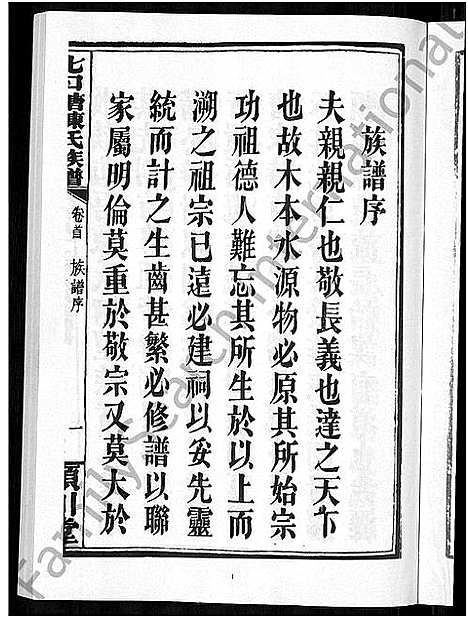 族譜序
夫親親仁也敬長義也達之天下
也故木本水源物必原其所始宗
功祖德人難忘其所生於以上而
溯之祖宗已遠必建祠以妥先靈
統而計之生齒甚繁必修譜以聯
家屬明倫莫重於敬宗又莫大於
七口塘陳氏族譜
卷首 族譜序
一
潁川堂
FamilySearch International
1